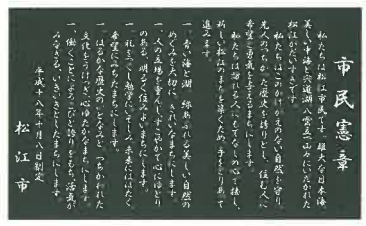 市民憲章
私たちは松江市民です。雄大な日本海
美しい中海と宍道湖 八雲立つ山々にいだかれた
松江がだいすきです。
私たちはこのかけがえのない自然を守り、
先人のつちかった歴史を誇りとし、住む人に
希望と勇気を与えるまちにします。
私たちは訪れる人にもてなしの心で接し、
新しい松江のまちを築くため 手をとりあって
進みます。
一、青い海と湖 緑あふれる美しい自然の
めぐみを大切に、きれいなまちにします。
一、人の立場を重んじ、すこやかで心にゆとり
のある、明るく住みよいまちにします。
一、礼をつくし勉学にいそしみ 未来にはばたく
希望にみちたまちにします。
一、はるかな歴史のいとなみと つちかわれた
文化をうけつぎ 心ゆたかなまちにします。
一、働くことによろこびと誇りをもち、活気が
みなぎる、いきいきとしたまちにします。
平成十八年十月八日制定
松江市